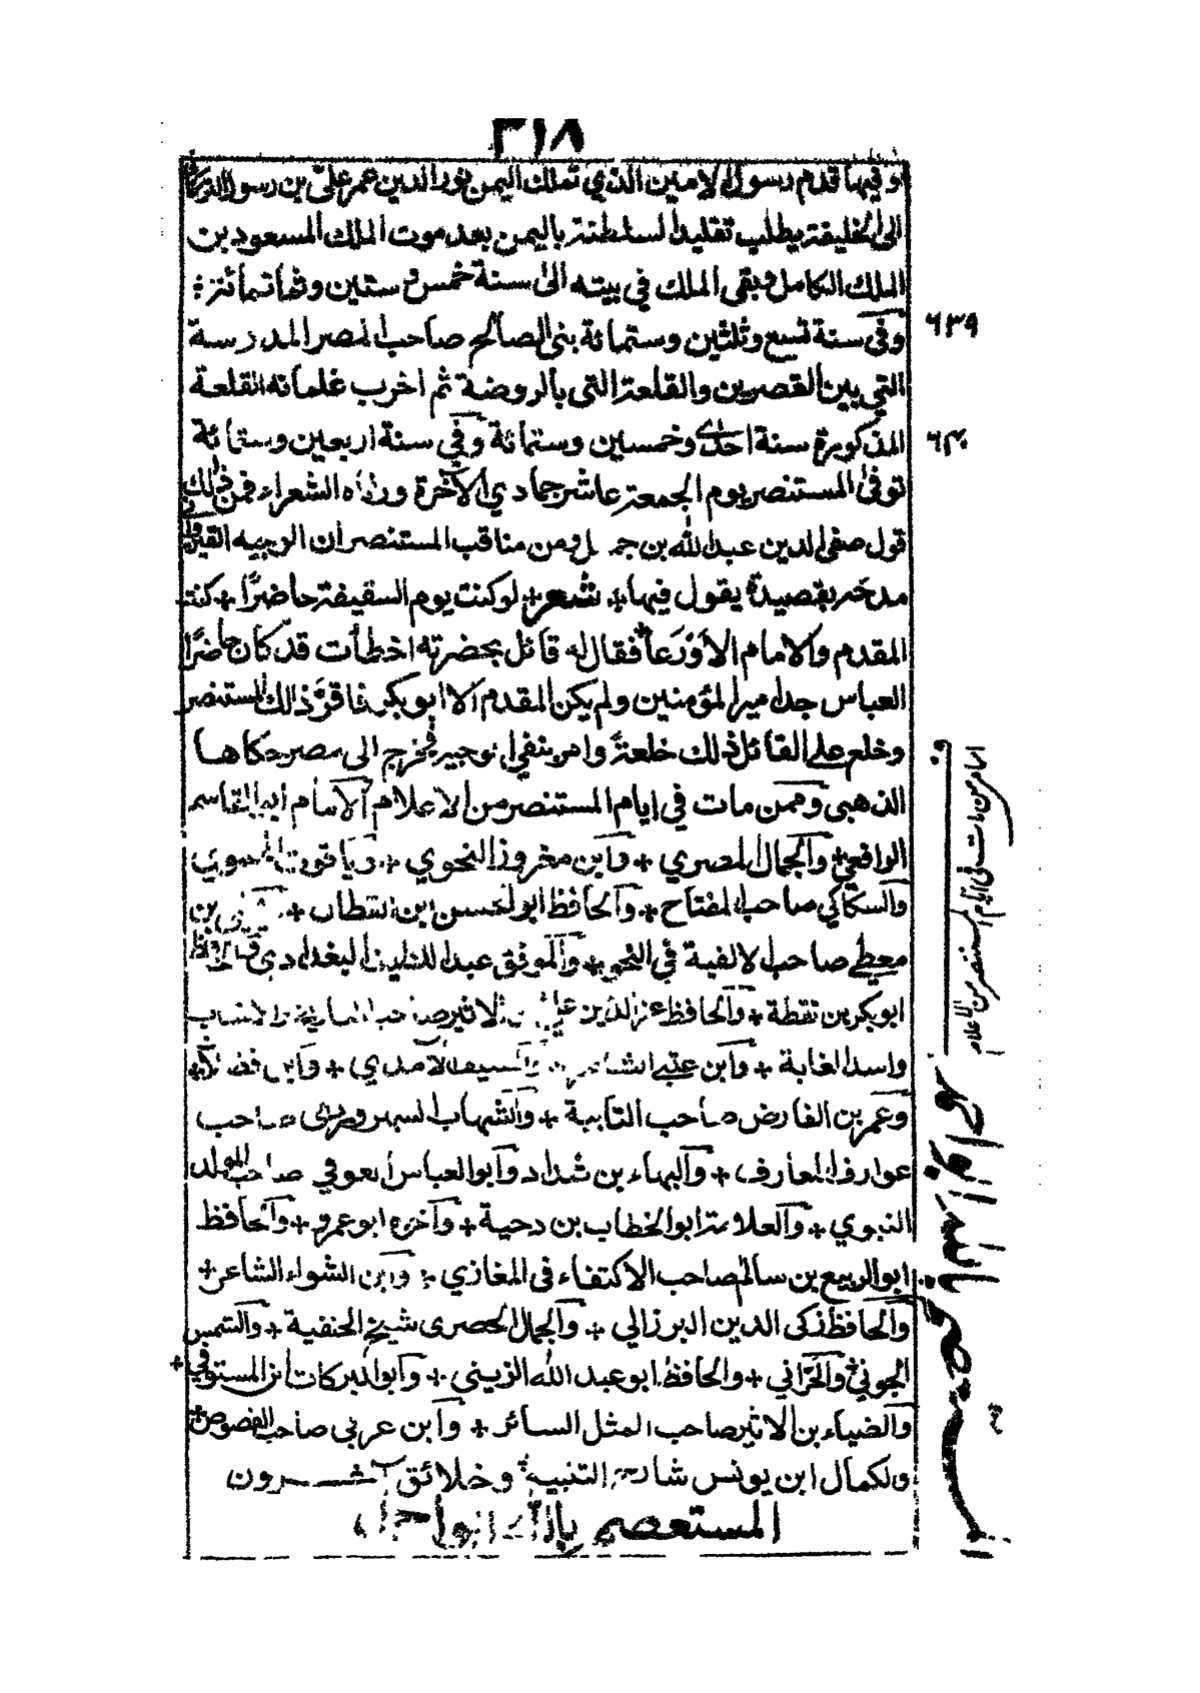 ٣١٨
وفيها قدم رسول الامين الذي تملك اليمن نور الدين عمر علي بن رسول التركماني
الى الخليفة يطلب تقليد السلطنة باليمن بعد موت الملك المسعود بن
الملك الكامل وبقى الملك في بيته الى سنة خمس وستين وثمانمائة
وفي سنة تسع وثلثين وستمائة بنى الصالح صاحب المصر المدرسة
٦٣٩
التي بين القصرين والقلعة التى بالروضة ثم اخرب غلمانه القلعة
المذكورة سنة احدى وخمسين وستمائة وفي سنة اربعين وستمائة
٦٤٠
توفى المستنصر يوم الجمعة عاشر جمادي الآخرة ورثاه الشعراء فمن ذلك
قول صفى الدين عبد الله بن جميل ومن مناقب المستنصر ان الوجيه القيرواني
مدحه بقصيدة يقول فيها + شعر + لو كنت يوم السقيفة حاضرًا + كنت
المقدم والامام الأوْرَعا + فقال له قائل بحضرته اخطأت قد كان حاضرًا
العباس جد امير المؤمنين ولم يكن المقدم الا ابو بكر فاقرّ ذلك المستنصر
وخلع على القائل ذلك خلعة وامر بنفي الوجيه فخرج الى مصر حكاها
الذهبى وممن مات في ايام المستنصر من الاعلام الامام ابو القاسم
الرافعي + والجمال المصري + وابن مخروز النحوي + وياقوت الحموي
والسكاكي صاحب المفتاح + والحافظ ابو الحسن ابن القطان + بن
معطى صاحب الالفية في النحو + والموفق عبد اللطيف البغدادي والحافظ
ابو بكر بن نقطة + والحافظ عز الدين علي بن الاثير صاحب التاريخ والانساب
واسد الغابة + وابن عتبى الشاعر والسيف الآمدي + وابن فضلان +
وعمر بن الفارض صاحب التائية + والشهاب السهروردى صاحب
عوارف المعارف + والبهاء بن شداد وابو العباس العوفي صاحب المولد
النبوي + والعلامة ابو الخطاب بن دحية + وآخوه ابو عمرو + والحافظ
ابو الربيع بن سالم صاحب الاكتفاء فى المغازي + وابن الشواء الشاعر +
والحافظ زكى الدين البرزالي + والجمال الحصرى شيخ الحنفية + والشمس
الجوني + والحرّاني + والحافظ ابو عبد الله الزينبي + وابو البركات ابن المستوفي +
والضياء بن الاثير صاحب المثل السائر + وابن عربى صاحب الفصوص +
والكمال ابن يونس شارح التنبيه + وخلائق آخرون
المستعصم بالله ابو احمد
اسامى من مات فى ايام المستنصر من الاعلام